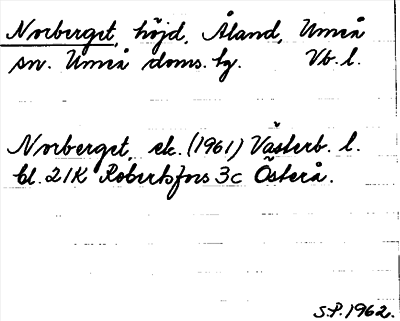 Norberget, höjd, Åland, Umeå
sn. Umeå doms. hg. Vb. l.
Norberget, ek. (1961) Västerb. l.
bl. 21K Robertsfors 3c Österå.
S.P. 1962.